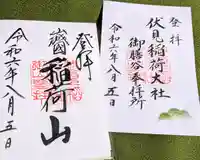 登拝
稲荷山
令和六年八月五日
登拝
伏見稲荷大社
御膳谷奉拝所
令和六年八月五日